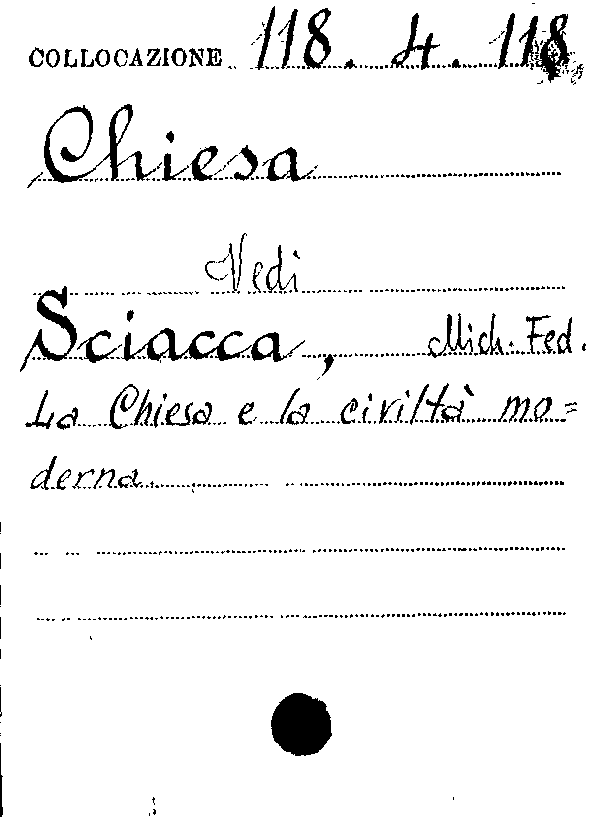 COLLOCAZIONE 118. 4. 118
Chiesa
Vedi
Sciacca, Mich. Fed.
La Chiesa e la civiltà mo=
derna.